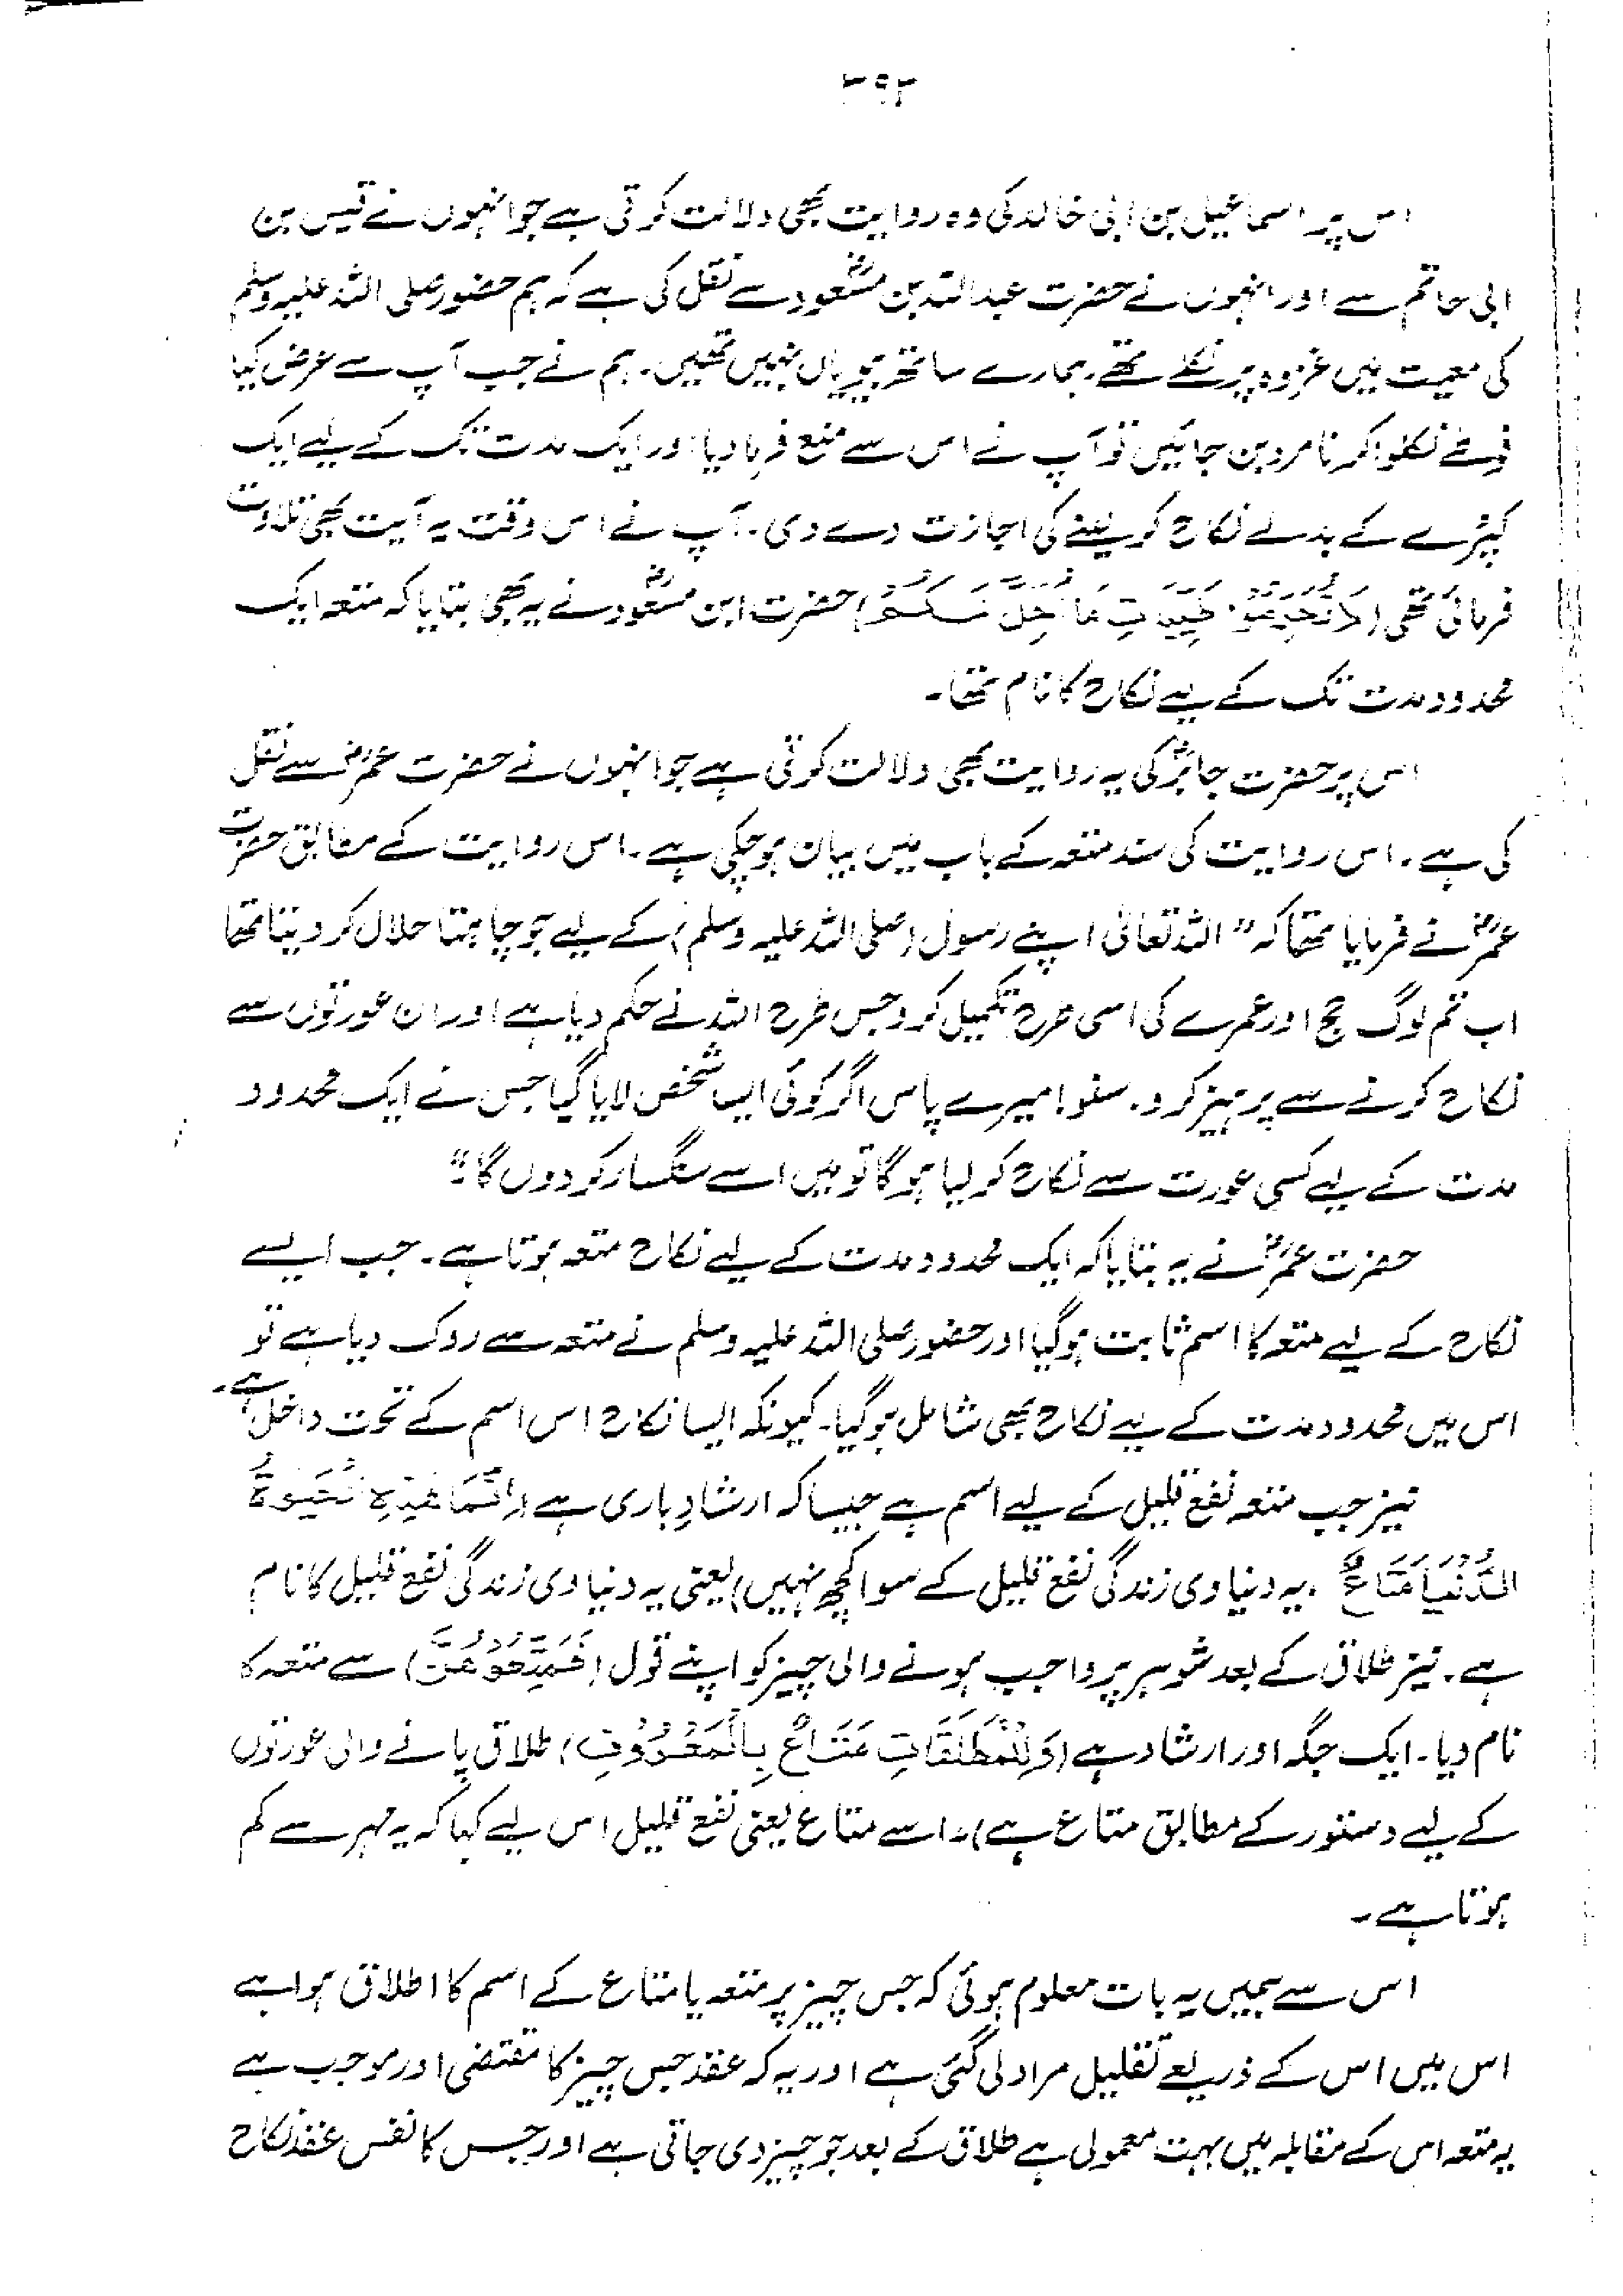 ۳۹۲
اس پر اسماعیل بن ابی خالد کی وہ روایت بھی دلالت کرتی ہے جو انہوں نے قیس بن
ابی حاتم سے اور انہوں نے حضرت عبداللہ بن مسعودؓ سے نقل کی ہے کہ ہم حضور صلی اللہ علیہ وسلم
کی معیت میں غزوہ پر نکلے تھے، ہمارے ساتھ بیویاں نہیں تھیں۔ ہم نے جب آپ سے عرض کیا
فوطے نکلوا کر نامرد بن جائیں تو آپ نے اس سے منع فرما دیا اور ایک مدت تک کے لیے ایک
کپڑے کے بدلے نکاح کو لینے کی اجازت دے دی۔ آپ نے اس وقت یہ آیت بھی تلاوت
فرمائی تھی (حضرت ابن مسعودؓ نے یہ بھی بتایا کہ متعہ ایک
محدود مدت تک کے لیے نکاح کا نام تھا۔
اس پر حضرت جابرؓ کی یہ روایت بھی دلالت کرتی ہے جو انہوں نے حضرت عمرؓ سے نقل
کی ہے۔ اس روایت کی سند متعہ کے باب میں بیان ہو چکی ہے۔ اس روایت کے مطابق حضرت
عمرؓ نے فرمایا تھا کہ "اللہ تعالیٰ اپنے رسول (صلی اللہ علیہ وسلم) کے لیے جو چاہتا حلال کر دیتا تھا
اب تم لوگ حج اور عمرے کی اسی طرح تکمیل کرو جس طرح اللہ نے حکم دیا ہے اور ان عورتوں سے
نکاح کرنے سے پرہیز کرو۔ سنو! میرے پاس اگر کوئی ایسا شخص لایا گیا جس نے ایک محدود
مدت کے لیے کسی عورت سے نکاح کر لیا ہو گا تو میں اسے سنگسار کر دوں گا"
حضرت عمرؓ نے یہ بتایا کہ ایک محدود مدت کے لیے نکاح متعہ ہوتا ہے۔ جب ایسے
نکاح کے لیے متعہ کا اسم ثابت ہو گیا اور حضور صلی اللہ علیہ وسلم نے متعہ سے روک دیا ہے تو
اس میں محدود مدت کے لیے نکاح بھی شامل ہو گیا۔ کیونکہ ایسا نکاح اس اسم کے تحت داخل ہے۔
نیز جب متعہ نفع قلیل کے لیے اسم ہے جیسا کہ ارشادِ باری ہے (اِنَّمَا هٰذِهِ الْحَيٰوةُ
الدُّنْيَا مَتَاعٌ، یہ دنیاوی زندگی نفع قلیل کے سوا کچھ نہیں) یعنی یہ دنیاوی زندگی نفع قلیل کا نام
ہے۔ نیز طلاق کے بعد شوہر پر واجب ہونے والی چیز کو اپنے قول (فَمَتِّعُوْهُنَّ) سے متعہ کا
نام دیا۔ ایک جگہ اور ارشاد ہے (وَلِلْمُطَلَّقَاتِ مَتَاعٌ بِالْمَعْرُوْفِ) طلاق پانے والی عورتوں
کے لیے دستور کے مطابق متاع ہے)۔ اسے متاع یعنی نفع قلیل اس لیے کہا کہ یہ مہر سے کم
ہوتا ہے۔
اس سے ہمیں یہ بات معلوم ہوئی کہ جس چیز پر متعہ یا متاع کے اسم کا اطلاق ہوا ہے
اس میں اس کے ذریعے تقلیل مراد لی گئی ہے اور یہ کہ عقد جس چیز کا مقتضی اور موجب ہے
یہ متعہ اس کے مقابلہ میں بہت معمولی ہے طلاق کے بعد جو چیز دی جاتی ہے اور جس کا نفس عقد نکاح